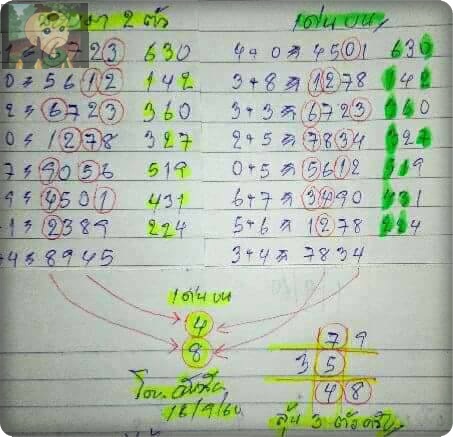 2 ตัว เด่นบน
6723 630 4+0=4501 630
0=5612 142 3+8=1278 142
2=6723 360 3+3=6723 360
0=1278 327 2+5=7834 327
7=9056 519 0+5=5612 519
9=4501 431 6+7=3490 431
1=2389 224 5+6=1278 224
4=8945 3+4=7834
เด่นบน
4
8
79
35
48
16/9/60
ลุ้น 3 ตัวครับ